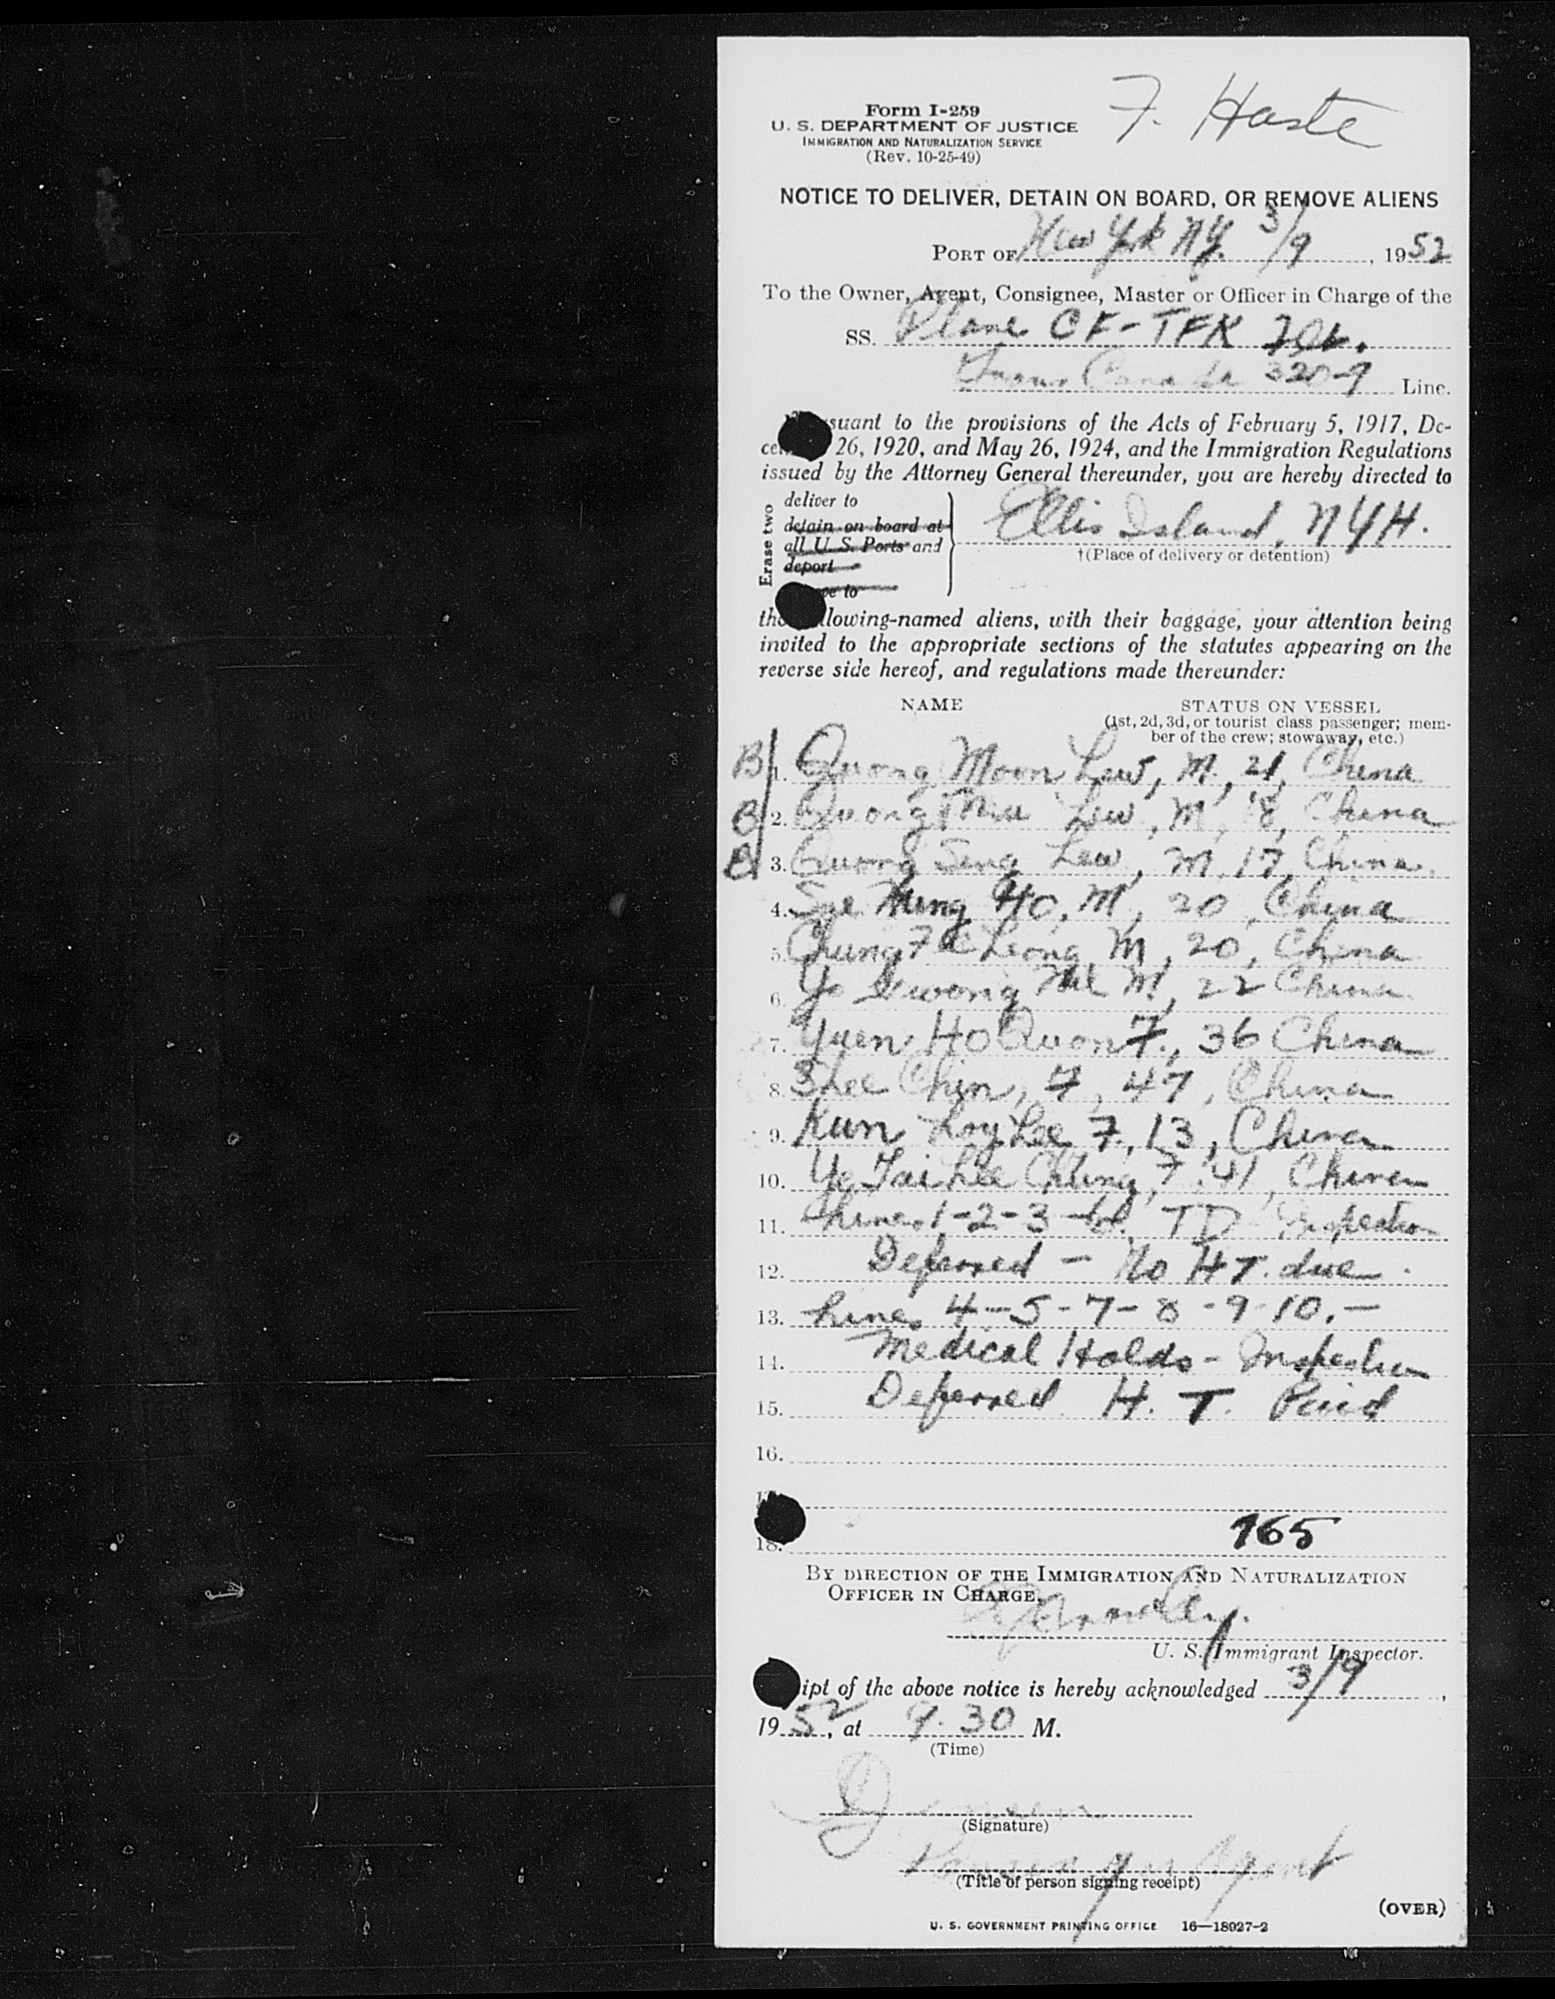 Form I-259
U. S. DEPARTMENT OF JUSTICE
IMMIGRATION AND NATURALIZATION SERVICE
(Rev. 10-25-49)
F. Haste
NOTICE TO DELIVER, DETAIN ON BOARD, OR REMOVE ALIENS
PORT OF New York NY. 3/9, 1952
To the Owner, Agent, Consignee, Master or Officer in Charge of the
SS. Plane CF-TFK
Trans Canada 320-9 Line.
suant to the provisions of the Acts of February 5, 1917, De-
26, 1920, and May 26, 1924, and the Immigration Regulations
issued by the Attorney General thereunder, you are hereby directed to
Erase two
deliver to
detain on board at
all U. S. Ports and
deport
to
Ellis Island, NYH.
†(Place of delivery or detention)
lowing-named aliens, with their baggage, your attention being
invited to the appropriate sections of the statutes appearing on the
reverse side hereof, and regulations made thereunder:
NAME STATUS ON VESSEL
(1st, 2d, 3d, or tourist class passenger; mem-
ber of the crew; stowaway, etc.)
B 1. Quong Moon Lew, M, 21, China
B 2. Quong Lew, M, 18, China
B 3. Quong Seng Lew, M. 17, China.
4. Sue Hung Ho, M, 20, China
5. Chung Leong M, 20, China
6. Yo M, 22 China.
7. Yuen Ho Quon F., 36 China
8. Shee Chin, F, 47, China
9. Kun Loy Lee F, 13, China
10. Ye Tai Lee Chung, F. 41, China
11. Lines 1-2-3 TD Inspection
12. Deferred - No HT. due.
13. Lines 4-5-7-8-9-10.-
14. Medical Holds - Inspection
15. Deferred H. T. Paid
16.
18.
165
BY DIRECTION OF THE IMMIGRATION AND NATURALIZATION
OFFICER IN CHARGE.
U. S. Immigrant Inspector.
ipt of the above notice is hereby acknowledged 3/9,
1952, at 9.30 M.
(Time)
(Signature)
Passenger Agent
(Title of person signing receipt)
(OVER)
U. S. GOVERNMENT PRINTING OFFICE 16—18027-2